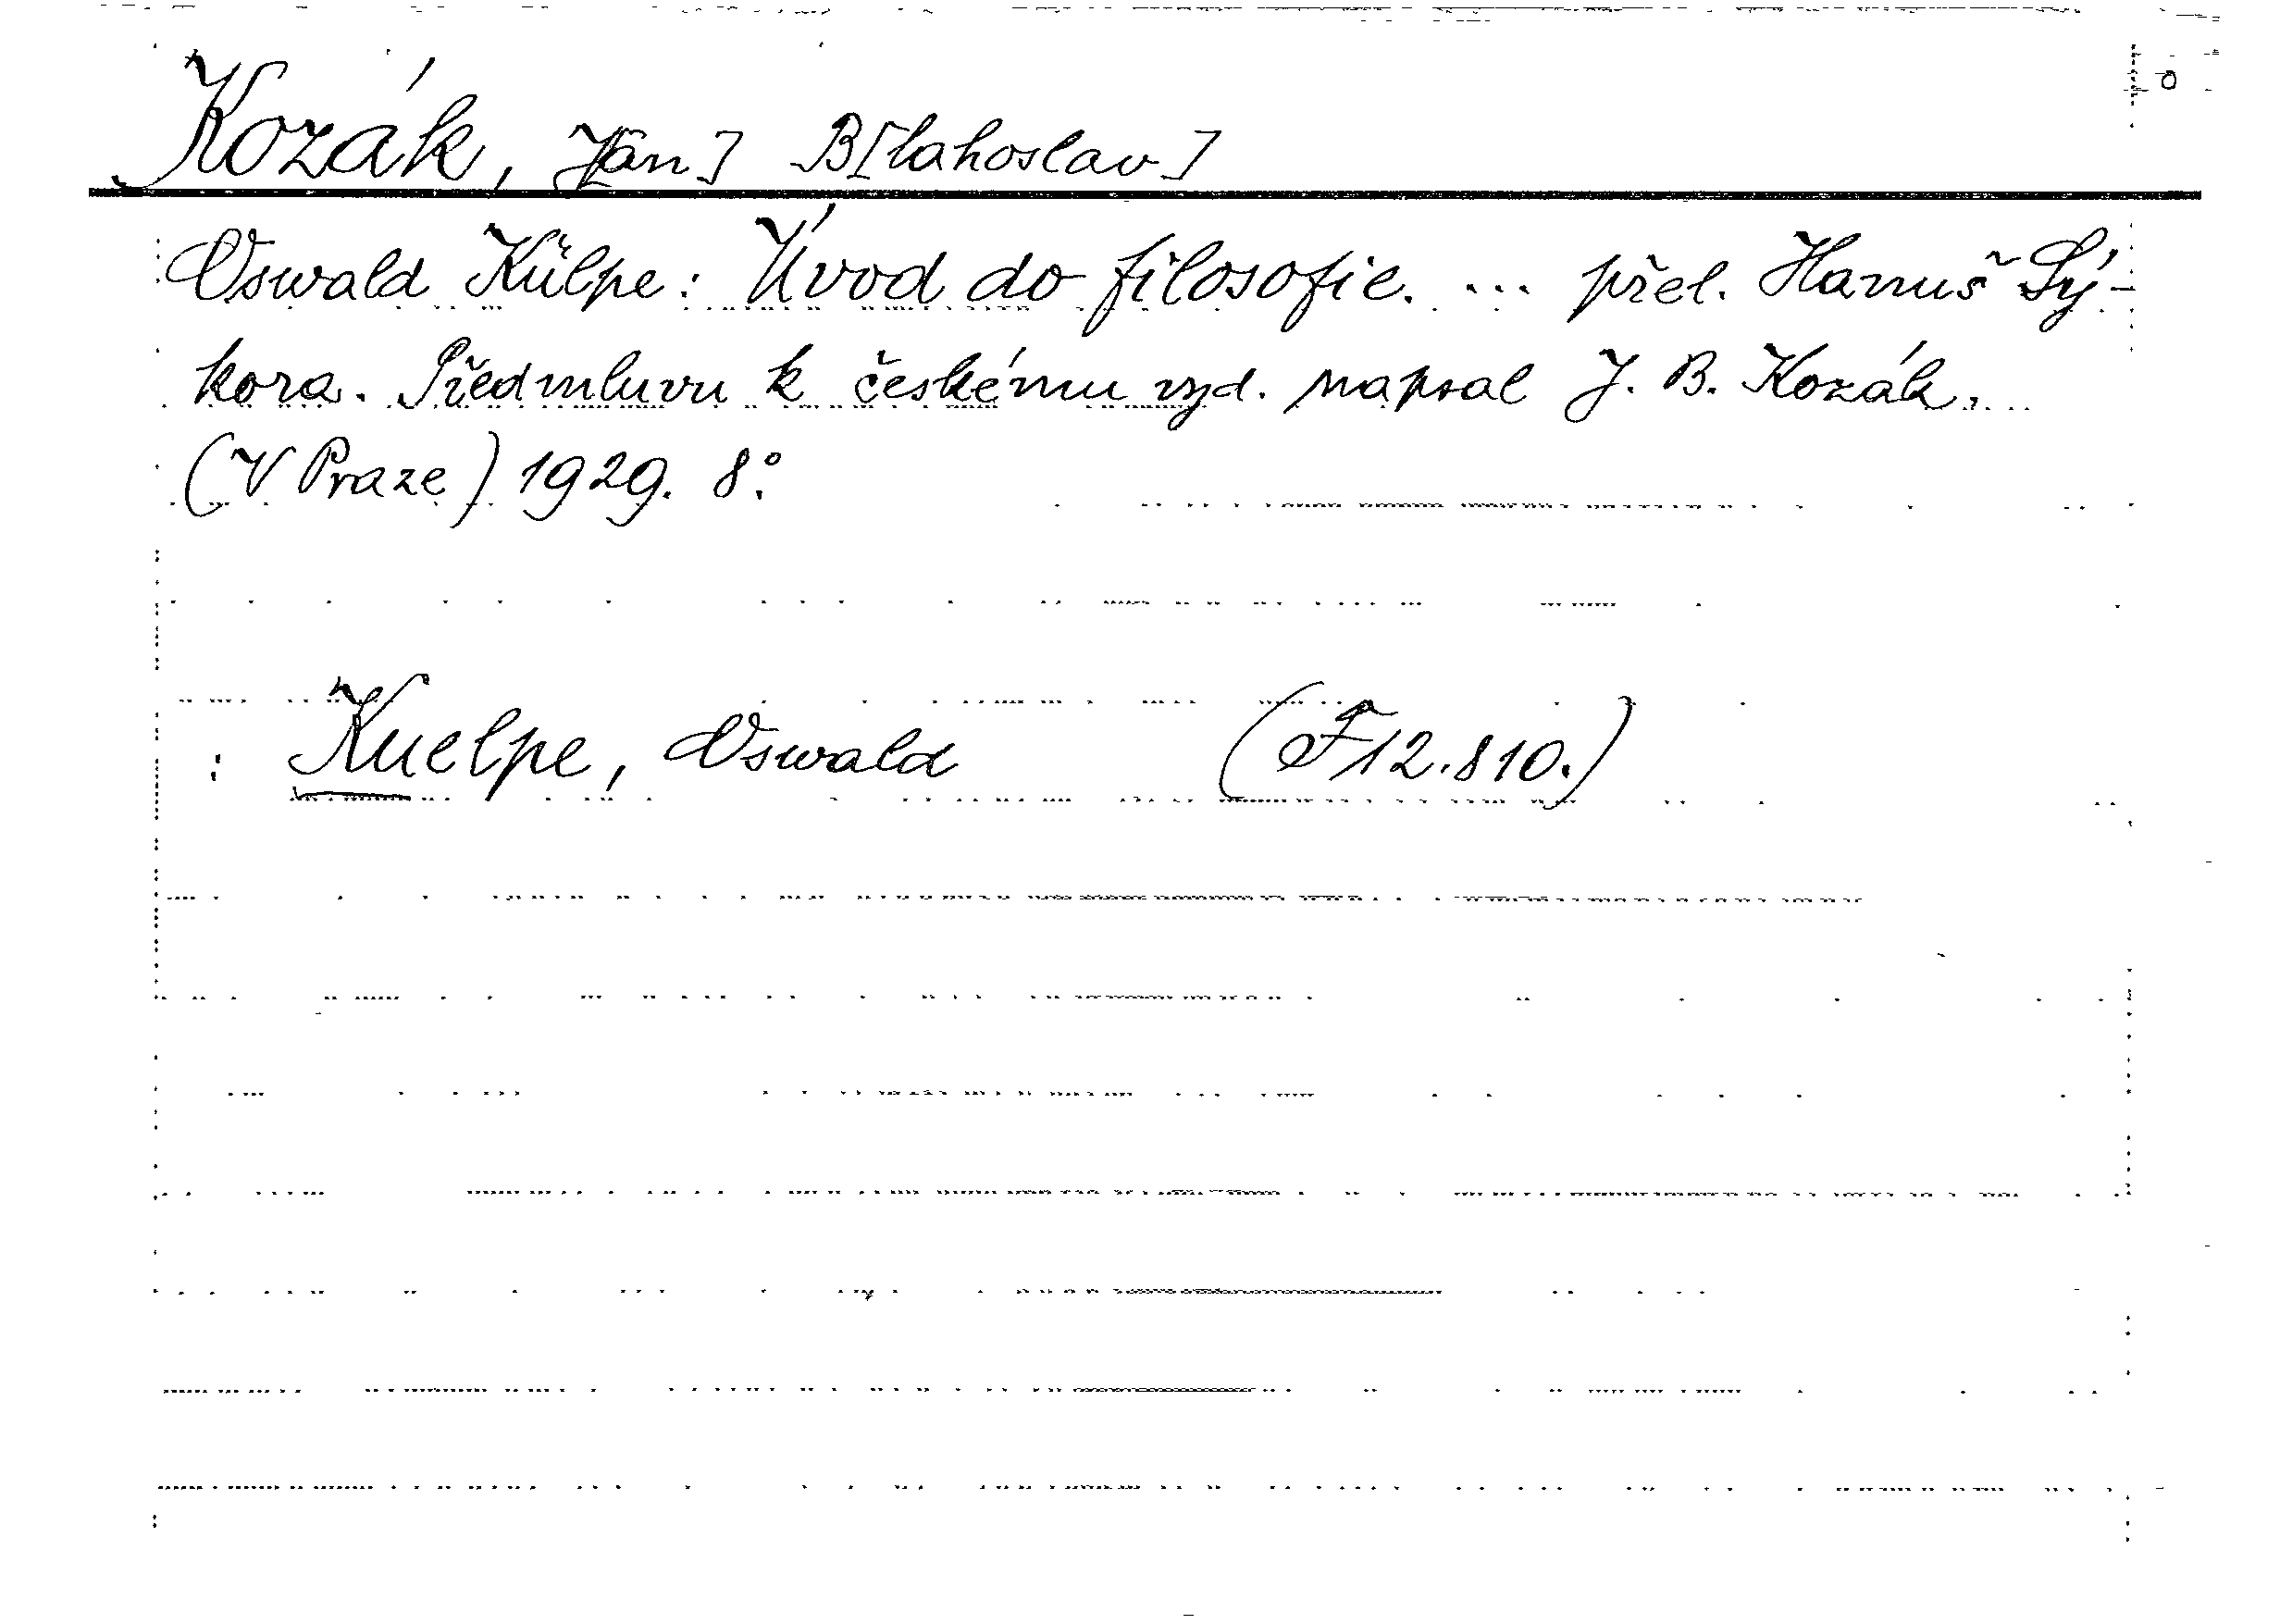 Kozák, J[an] B[lahoslav]
Oswald Külpe: Úvod do filosofie. ... přel. Hanuš Sý-
kora. Předmluvu k českému vyd. napsal J. B. Kozák...
(V Praze) 1929. 8°.
: Kuelpe, Oswald (F12.810.)